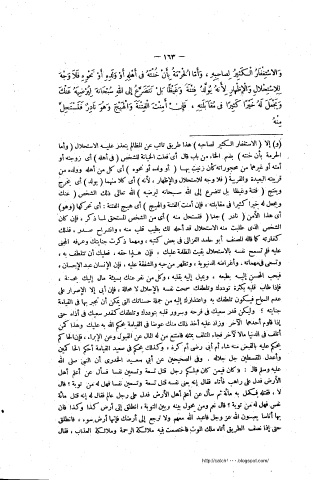 - ١٦٣ -
وَالِاسْتِغْفَارُ الْكَثِيرُ لِصَاحِبِهِ، وَأَمَّا الْحُرْمَةُ بِأَنْ خُنْتَهُ فِي أَهْلِهِ أَوْ وَلَدِهِ أَوْ نَحْوِهِ فَلَا وَجْهَ
لِلِاسْتِحْلَالِ وَالْإِظْهَارِ لِأَنَّهُ يُوَلِّدُ فِتْنَةً وَغَيْظًا بَلْ تَتَضَرَّعُ إِلَى اللهِ سُبْحَانَهُ لِيُرْضِيَهُ عَنْكَ
وَيَجْعَلَ لَهُ خَيْرًا كَثِيرًا فِي مُقَابَلَتِهِ، فَإِنْ أَمِنْتَ الْفِتْنَةَ وَالْهَيْجَ وَهُوَ نَادِرٌ فَتَسْتَحِلَّ
مِنْهُ
(و) إلا (الاستغفار الكثير لصاحبه) هذا طريق تائب عن الظالم بتعذر عليه الاستحلال (وأما
الحرمة بأن خنته) بضم الخاء من باب قال أي فعلت الخيانة للشخص (في أهله) أي زوجته أو
أمته أو غيرهما من
قرينته البعيدة والقريبة (فلا وجه للاستحلال والإظهار لأنه) أي كلا منهما (يولد) أي يخرج
وينتج (فتنة وغيظا بل تتضرع إلى الله سبحانه ليرضيه) أي الله تعالى ذلك الشخص (عنك
ويجعل له خيرا كثيرا في مقابلته، فإن أمنت الفتنة والهيج) أي هيج الفتنة: أي تحركها (وهو)
أي هذا الأمن (نادر) جدا (فتستحل منه) أي من الشخص المستحق لما ذكر، فإن كان
الشخص الذي طلبت منه الاستحلال قد أحله لك بطيب قلب منه وانشراح صدر، فذلك
كفارته كما قاله المصنف أبو حامد الغزالي في بعض كتبه، ومهما ذكرت جنايتك وعرفه المجني
عليه فلم تسمح نفسه بالاستحلال بقيت المظلمة عليك، فإن هذا حقه، فعليك أن تتلطف به،
وتسعى في مهماته، وأغراضه الدنيوية، وتظهر من حبه والشفقة عليه، فإن الإنسان عبد الإحسان،
فيجب المحسن إليه بطبعه، ويميل إليه بقلبه، وكل من نفر عنك بسيئة مال إليك بحسنة،
فإذا طاب قلبه بكثرة توددك وتلطفك سمحت نفسه بالإحلال لا محالة، فإن أبى إلا الإصرار على
عدم السماح فيكون تلطفك به واعتذارك إليه من جملة حسناتك التي يمكن أن تجبر بها في القيامة
جنايته؛ وليكن قدر سعيك في فرحه وسرور قلبه بتوددك وتلطفك كقدر سعيك في أذاه حتى
إذا قاوم أحدهما الآخر وزاد عليه أخذ ذلك منك عوضا في القيامة بحكم الله به عليك، وهذا كمن
أتلف في الدنيا مالا لآخر فجاء المتلف بمثله فامتنع من له المال عن القبول وعن الإبراء، فإن الحاكم
بحكم عليه بالقبض منه شاء أم أبى رضي أم كره، وكذلك يحكم في صعيد القيامة أحكم الحاكمين
وأعدل المقسطين جل جلاله. وفي الصحيحين عن أبي سعيد الخدري أن النبي صلى الله
عليه وسلم قال: « كان فيمن كان قبلكم رجل قتل تسعة وتسعين نفسا، فسأل عن أعلم أهل
الأرض فدل على راهب فأتاه، فقال إنه يعني نفسه قتل تسعة وتسعين نفسا فهل له من توبة؟ قال
لا، فقتله فكمل به مائة ثم سأل عن أعلم أهل الأرض فدل على رجل عالم فقال له إنه قتل مائة
نفس فهل له من توبة؟ قال نعم ومن يحول بينه وبين التوبة، انطلق إلى أرض كذا وكذا فإن
بها أناسا يعبدون الله عز وجل فاعبد الله معهم ولا ترجع إلى أرضك فإنها أرض سوء، فانطلق
حتى إذا نصف الطريق أتاه ملك الموت فاختصمت فيه ملائكة الرحمة وملائكة العذاب، فقال